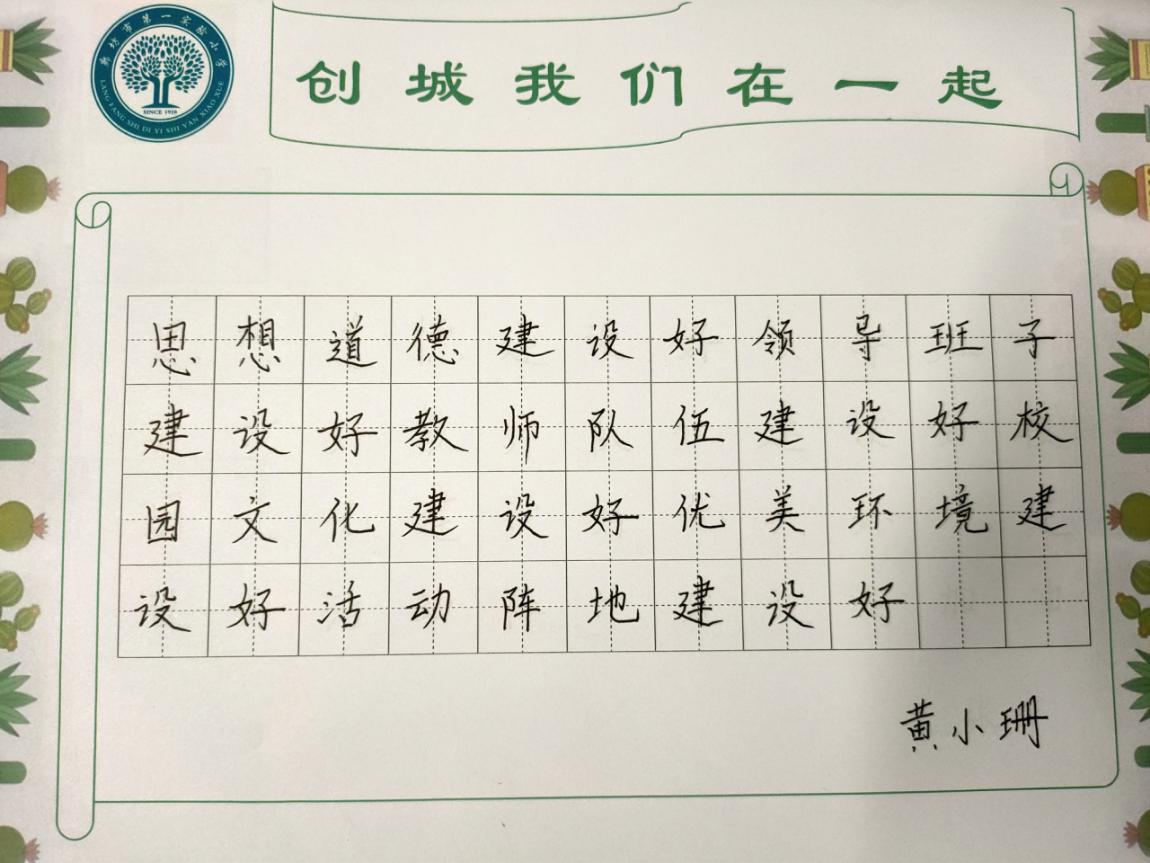 廊坊市第一实验小学
LANG FANG SHI DI YI SHI YAN XIAO XUE
SINCE 1928
创城我们在一起
思想道德建设好领导班子
建设好教师队伍建设好校
园文化建设好优美环境建
设好活动阵地建设好
黄小珊